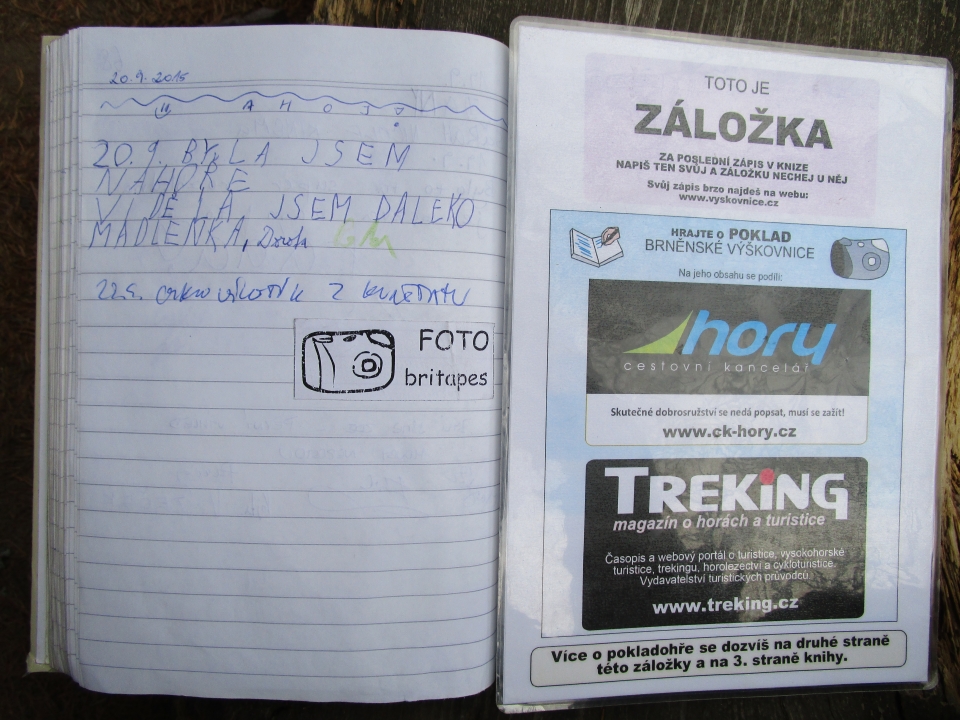 20.9.2015
AHOJ
20.9. BYLA JSEM
NAHOŘE
VIDĚLA JSEM DALEKO
MADLENKA,
22.9.
FOTO
britapes
TOTO JE
ZÁLOŽKA
ZA POSLEDNÍ ZÁPIS V KNIZE
NAPIŠ TEN SVŮJ A ZÁLOŽKU NECHEJ U NĚJ
Svůj zápis brzo najdeš na webu:
www.vyskovnice.cz
HRAJTE O POKLAD
BRNĚNSKÉ VÝŠKOVNICE
Na jeho obsahu se podíli:
hory
cestovní kancelář
Skutečné dobrosružství se nedá popsat, musí se zažít!
www.ck-hory.cz
TREKiNG
magazín o horách a turistice
Časopis a webový portál o turistice, vysokohorské
turistice, trekingu, horolezectví a cykloturistice.
Vydavatelství turistických průvodců
www.treking.cz
Více o pokladohře se dozvíš na druhé straně
této záložky a na 3. straně knihy.